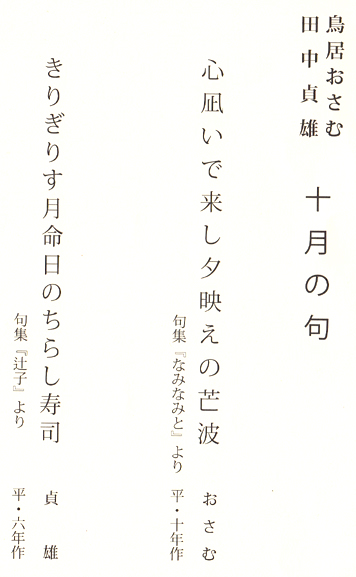 鳥居おさむ
田中貞雄
十月の句
心凪いで来し夕映えの芒波
おさむ
句集『なみなみと』より
平・十年作
きりぎりす月命日のちらし寿司
貞雄
句集『辻子』より
平・六年作